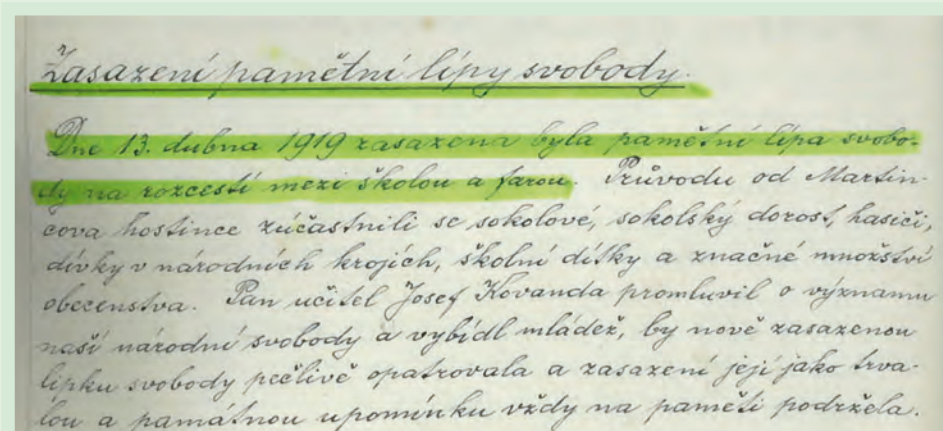 Zasazení pamětní lípy svobody.
Dne 13. dubna 1919 zasazena byla pamětní lípa svobo-
dy na rozcestí mezi školou a farou. Průvodu od Martin-
cova hostince zúčastnili se sokolové, sokolský dorost, hasiči,
dívky v národních krojích, školní dítky a značné množství
obecenstva. Pan učitel Josef Kovanda promluvil o významu
naší národní svobody a vybídl mládež, by nově zasazenou
lípku svobody pečlivě opatrovala a zasazení její jako trva-
lou a památnou upomínku vždy na paměti podržela.